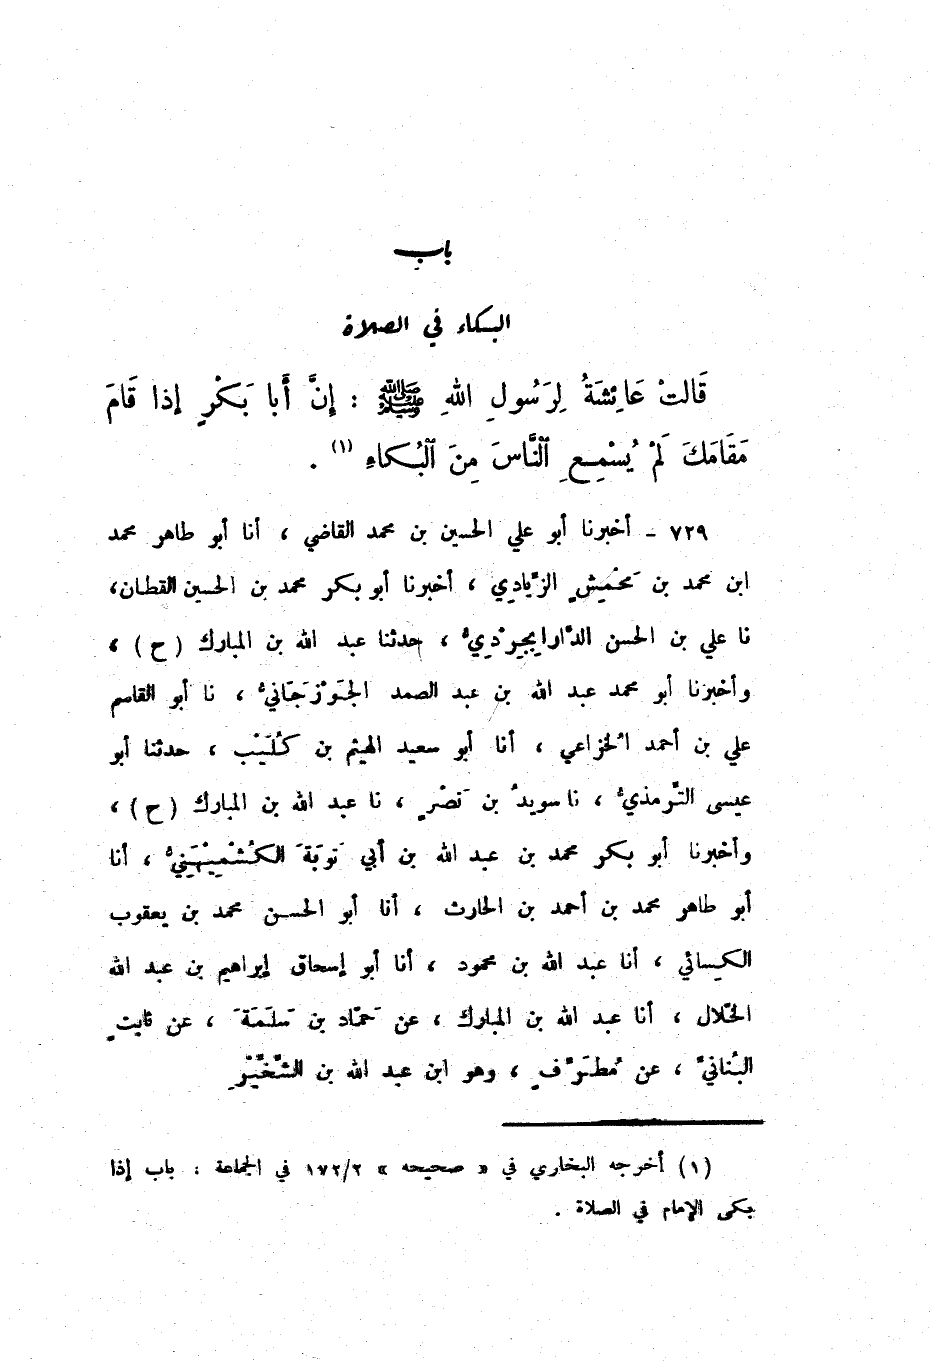 باب
البكاء في الصلاة
قَالتْ عَائِشَةُ لِرَسُولِ اللهِ ﷺ : إِنَّ أَبا بَكْرٍ إذا قَامَ
مَقَامَكَ لَمْ يُسْمِعِ ٱلنَّاسَ مِنَ ٱلْبُكاءِ (١) .
٧٢٩ - أخبرنا أبو علي الحسين بن محمد القاضي ، أنا أبو طاهر محمد
ابن محمد بن مَحْمِيشٍ الزِّيادِي ، أخبرنا أبو بكر محمد بن الحسين القطان،
نا علي بن الحسن الدَّارابِجِرْدِيُّ ، حدثنا عبد الله بن المبارك ( ح ) ،
وأخبرنا أبو محمد عبد الله بن عبد الصمد الجَوْزجَانيُّ ، نا أبو القاسم
علي بن أحمد الخزاعي ، أنا أبو سعيد الهيثم بن كُلَيْب ، حدثنا أبو
عيسى التِّرمذيُّ ، نا سويدُ بن نَصْرٍ ، نا عبد الله بن المبارك ( ح ) ،
وأخبرنا أبو بكر محمد بن عبد الله بن أبي تَوبَةَ الكُشْمِيْهَنِيُّ ، أنا
أبو طاهر محمد بن أحمد بن الحارث ، أنا أبو الحسن محمد بن يعقوب
الكيسائي ، أنا عبد الله بن محمود ، أنا أبو إسحاق إبراهيم بن عبد الله
الخلّال ، أنا عبد الله بن المبارك ، عن حَمّاد بن سَلَمَةَ ، عن ثابتٍ
البُنانيِّ ، عن مُطَرِّفٍ ، وهو ابن عبد الله بن الشِّخِّيْرِ
(١) أخرجه البخاري في « صحيحه » ١٧٢/٢ في الجماعة : باب إذا
بكى الإمام في الصلاة .